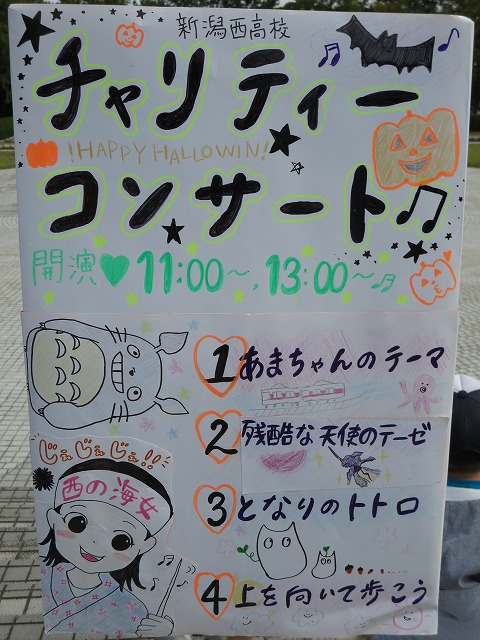 新潟西高校
チャリティー
!HAPPY HALLOWIN!
コンサート
開演♥11:00～,13:00～
1 あまちゃんのテーマ
2 残酷な天使のテーゼ
3 となりのトトロ
4 上を向いて歩こう
じぇじぇじぇ!!
西の海女